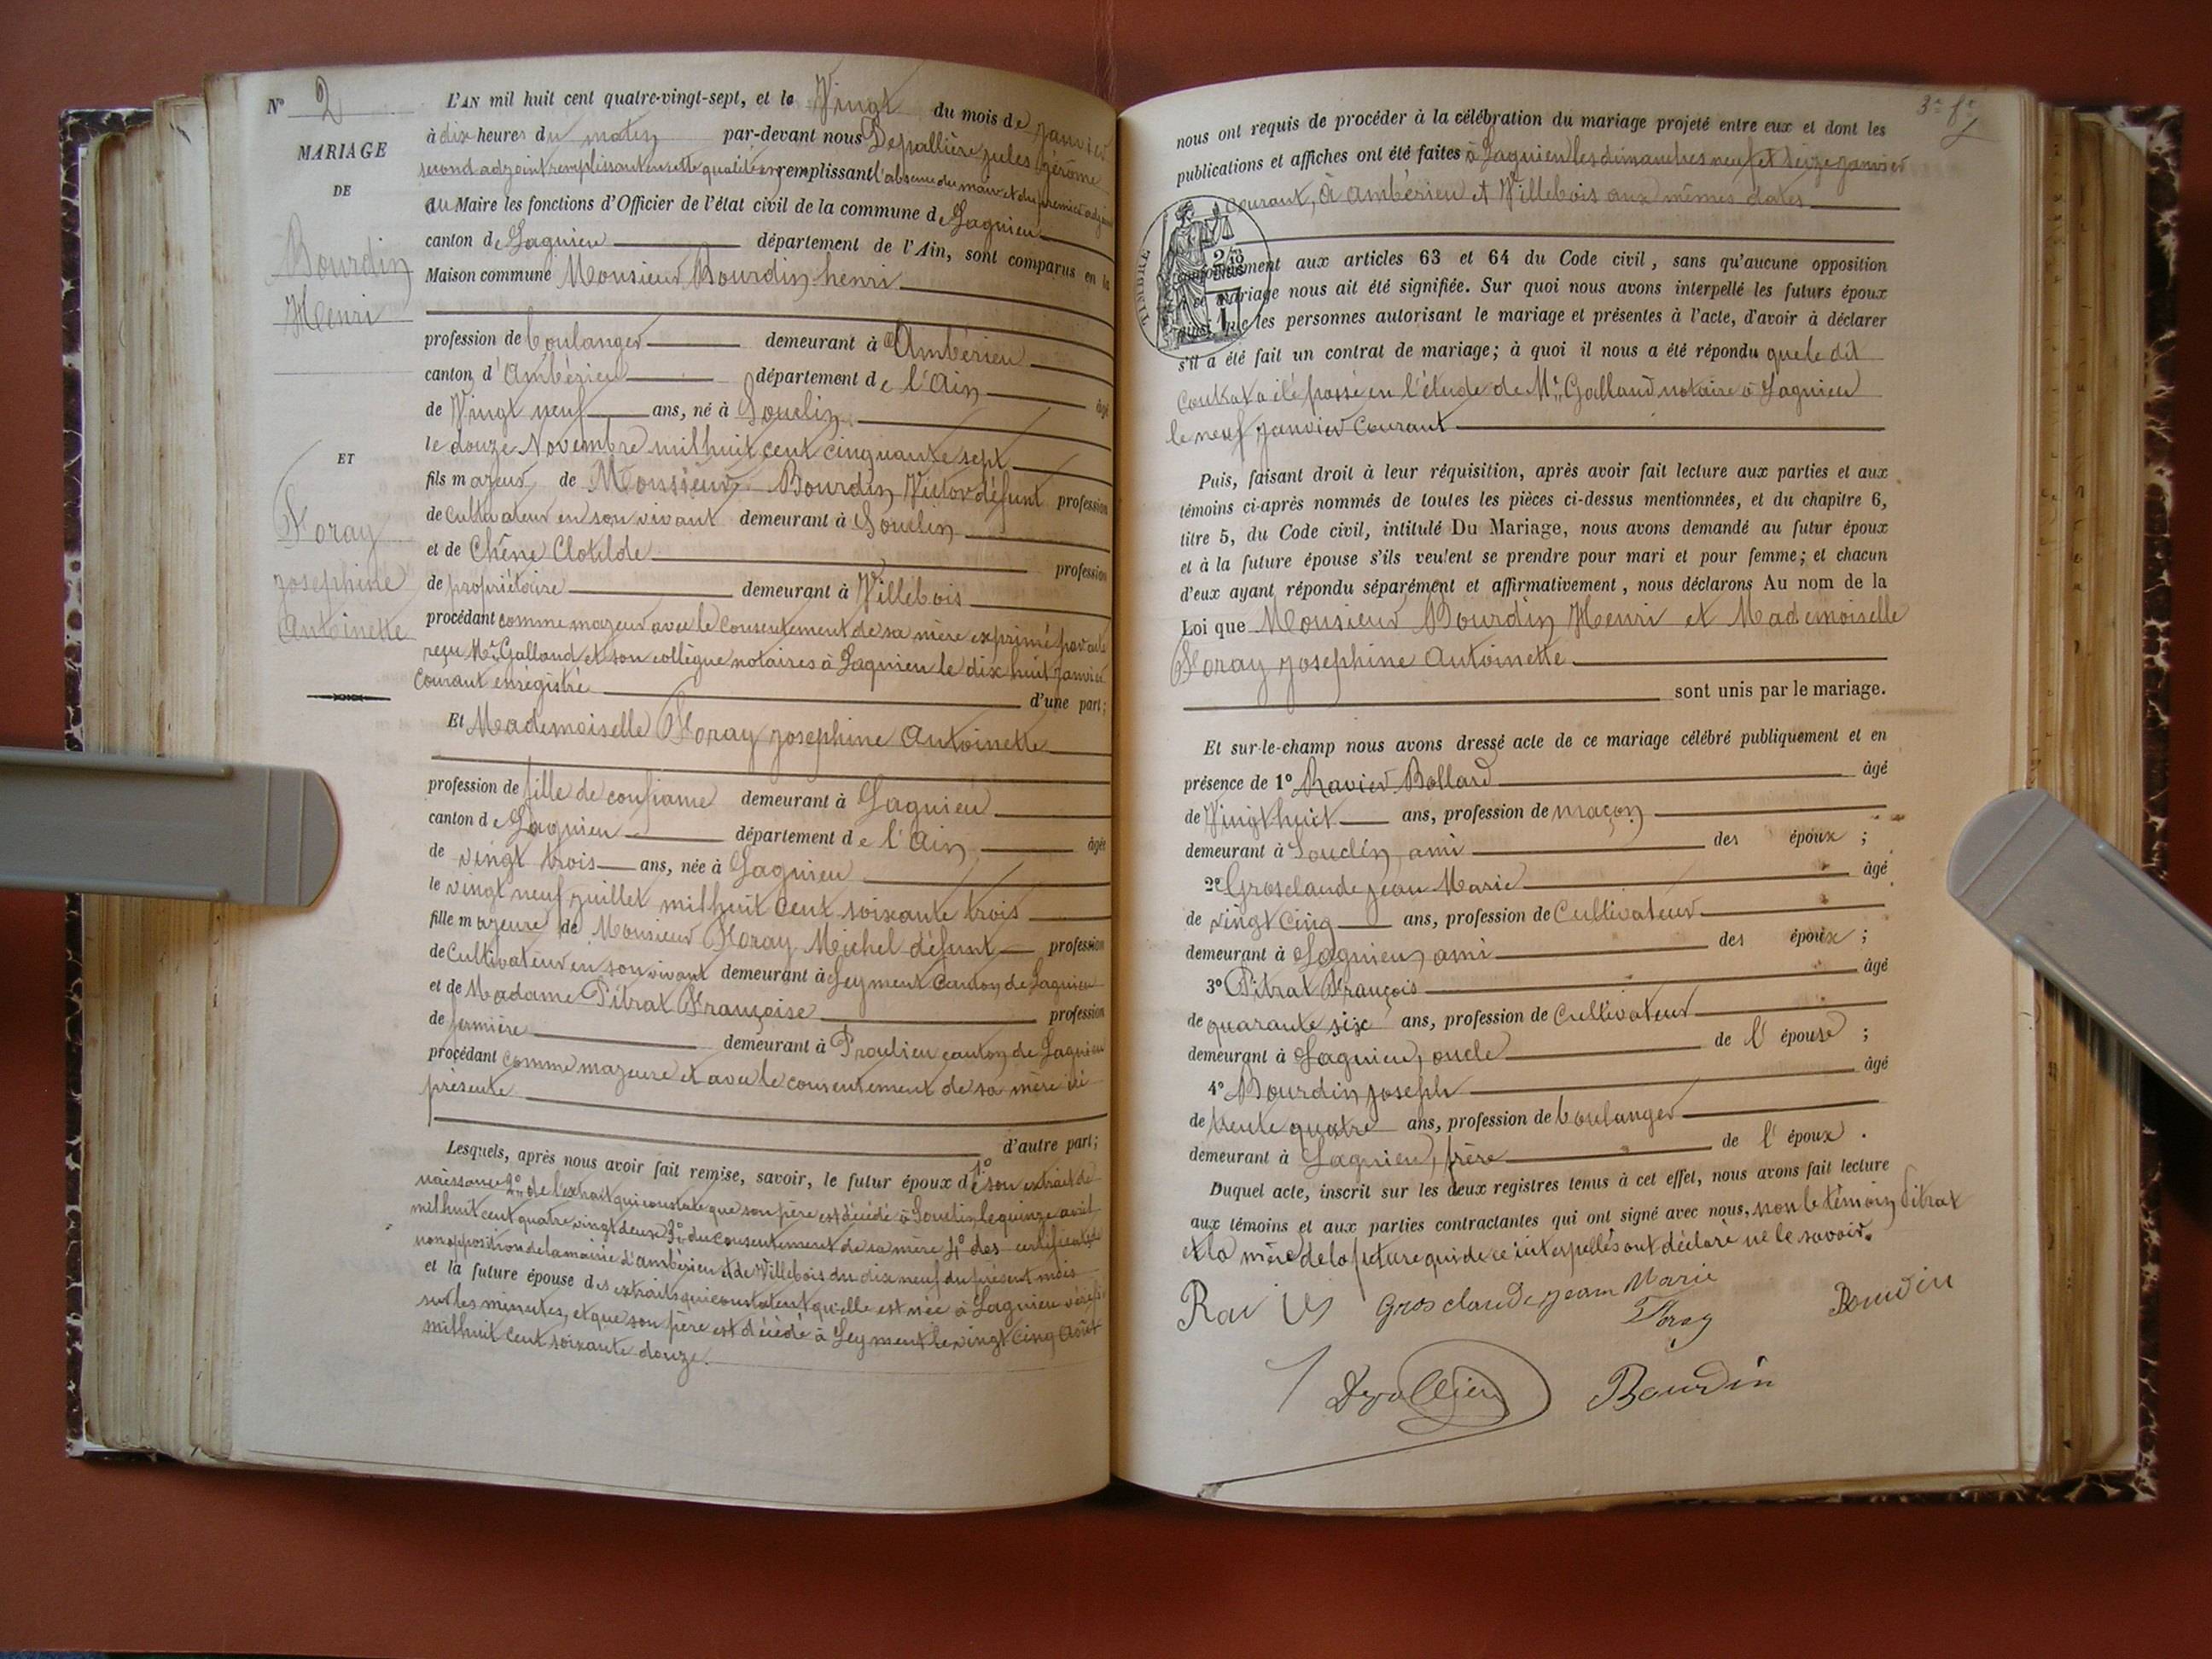 N° 2
MARIAGE
DE
Bourdin
Henri
ET
Foray
josephine
Antoinette
L'AN mil huit cent quatre-vingt-sept, et le Vingt du mois de janvier
à dix heures du matin par-devant nous Depallière jules gérôme
second adjoint remplissant en cette qualité en remplissant l'absence du maire et du premier adjoint
du Maire les fonctions d'Officier de l'état civil de la commune de Lagnieu
canton de Lagnieu département de l'Ain, sont comparus en la
Maison commune Monsieur Bourdin henri
profession de boulanger demeurant à Ambérieu
canton d'Ambérieu département de l'Ain âgé
de Vingt neuf ans, né à Souclin
le douze Novembre mil huit cent cinquante sept
fils majeur de Monsieur Bourdin Victor défunt profession
de cultivateur en son vivant demeurant à Souclin
et de Chêne Clotilde profession
de propriétaire demeurant à Villebois
procédant comme majeur avec le consentement de sa mère exprimé par acte
reçu Me Galland et son collègue notaires à Lagnieu le dix huit janvier
courant enregistré d'une part;
Et Mademoiselle Foray josephine Antoinette
profession de fille de confiance demeurant à Lagnieu
canton de Lagnieu département de l'Ain âgée
de vingt trois ans, née à Lagnieu
le vingt neuf juillet mil huit cent soixante trois
fille majeure de Monsieur Foray Michel défunt profession
de Cultivateur en son vivant demeurant à Leyment canton de Lagnieu
et de Madame Pitrat Françoise profession
de fermière demeurant à Proulieu canton de Lagnieu
procédant comme majeure et avec le consentement de sa mère ici
présente
d'autre part;
Lesquels, après nous avoir fait remise, savoir, le futur époux de 1° son extrait de
naissance 2° de l'extrait qui constate que son père est décédé à Souclin le quinze avril
mil huit cent quatre vingt deux 3° du consentement de sa mère 4° des certificats de
non opposition de la mairie d'ambérieu et de Villebois du dix neuf du présent mois
et la future épouse des extraits qui constatent qu'elle est née à Lagnieu vérifié
sur les minutes, et que son père est décédé à Leyment le vingt cinq Août
mil huit cent soixante douze.
3e ft
nous ont requis de procéder à la célébration du mariage projeté entre eux et dont les
publications et affiches ont été faites à Lagnieu les dimanches neuf et seize janvier
courant, à Ambérieu et Villebois aux mêmes dates
TIMBRE
conformément aux articles 63 et 64 du Code civil, sans qu'aucune opposition
à ce mariage nous ait été signifiée. Sur quoi nous avons interpellé les futurs époux
ainsi que les personnes autorisant le mariage et présentes à l'acte, d'avoir à déclarer
s'il a été fait un contrat de mariage; à quoi il nous a été répondu que le dit
contrat a été passé en l'étude de Me Galland notaire à Lagnieu
le neuf janvier courant
Puis, faisant droit à leur réquisition, après avoir fait lecture aux parties et aux
témoins ci-après nommés de toutes les pièces ci-dessus mentionnées, et du chapitre 6,
titre 5, du Code civil, intitulé Du Mariage, nous avons demandé au futur époux
et à la future épouse s'ils veulent se prendre pour mari et pour femme; et chacun
d'eux ayant répondu séparément et affirmativement, nous déclarons Au nom de la
Loi que Monsieur Bourdin Henri et Mademoiselle
Foray josephine Antoinette
sont unis par le mariage.
Et sur-le-champ nous avons dressé acte de ce mariage célébré publiquement et en
présence de 1° Ravier Bollard âgé
de Vingt huit ans, profession de maçon
demeurant à Souclin, ami des époux;
2° Grosclaude jean Marie âgé
de vingt cinq ans, profession de Cultivateur
demeurant à Lagnieu, ami des époux;
3° Pitrat François âgé
de quarante six ans, profession de Cultivateur
demeurant à Lagnieu, oncle de l'épouse;
4° Bourdin joseph âgé
de trente quatre ans, profession de boulanger
demeurant à Lagnieu, frère de l'époux.
Duquel acte, inscrit sur les deux registres tenus à cet effet, nous avons fait lecture
aux témoins et aux parties contractantes qui ont signé avec nous, non le témoin Pitrat
et la mère de la future qui de ce interpellés ont déclaré ne le savoir.
Ravier Grosclaude jean Marie
Foray Bourdin
Depallière Bourdin